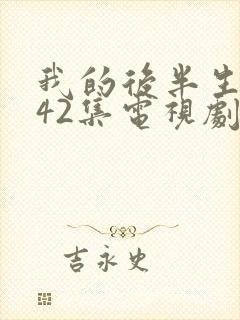 我的後半生
42集電視劇
吉永史